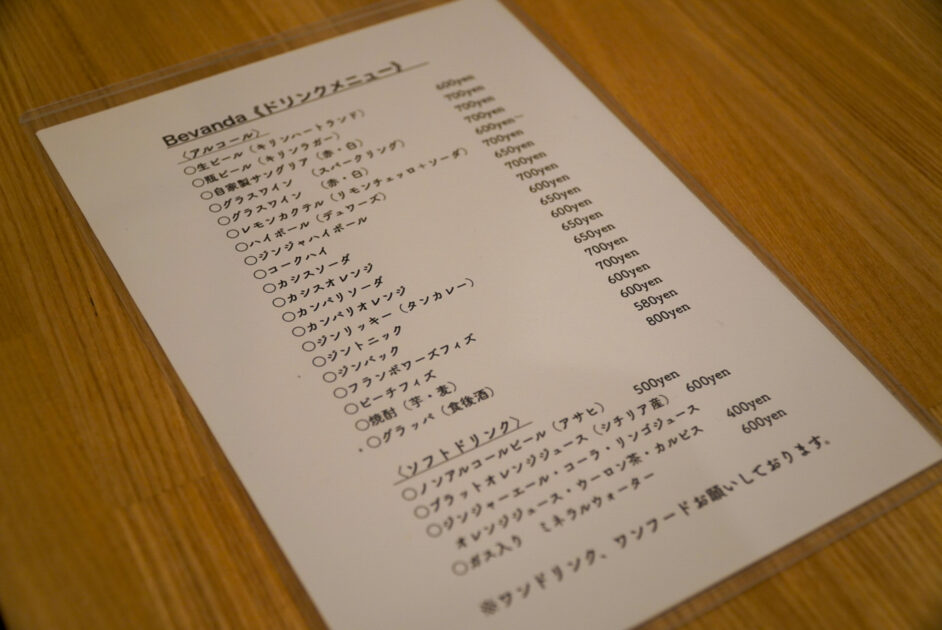 Bevanda《ドリンクメニュー》
〈アルコール〉
〇生ビール（キリンハートランド） 600yen
〇瓶ビール（キリンラガー） 700yen
〇自家製サングリア（赤・白） 700yen
〇グラスワイン （スパークリング） 700yen
〇グラスワイン （赤・白） 600yen～
〇レモンカクテル（リモンチェッロ+ソーダ） 700yen
〇ハイボール（デュワーズ） 650yen
〇ジンジャハイボール 700yen
〇コークハイ 700yen
〇カシスソーダ 600yen
〇カシスオレンジ 650yen
〇カンパリソーダ 600yen
〇カンパリオレンジ 650yen
〇ジンリッキー（タンカレー） 650yen
〇ジントニック 700yen
〇ジンバック 700yen
〇フランボワーズフィズ 600yen
〇ピーチフィズ 600yen
〇焼酎（芋・麦） 580yen
〇グラッパ（食後酒） 800yen
〈ソフトドリンク〉
〇ノンアルコールビール（アサヒ） 500yen
〇ブラットオレンジジュース（シチリア産） 600yen
〇ジンジャーエール・コーラ・リンゴジュース
オレンジジュース・ウーロン茶・カルピス 400yen
〇ガス入り ミネラルウォーター 600yen
※ワンドリンク、ワンフードお願いしております。